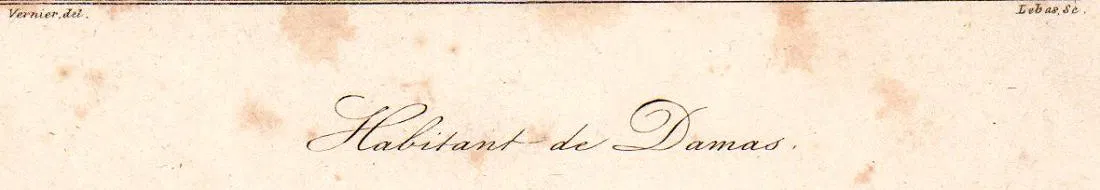 Vernier, del.
Lebas, Sc.
Habitant de Damas.